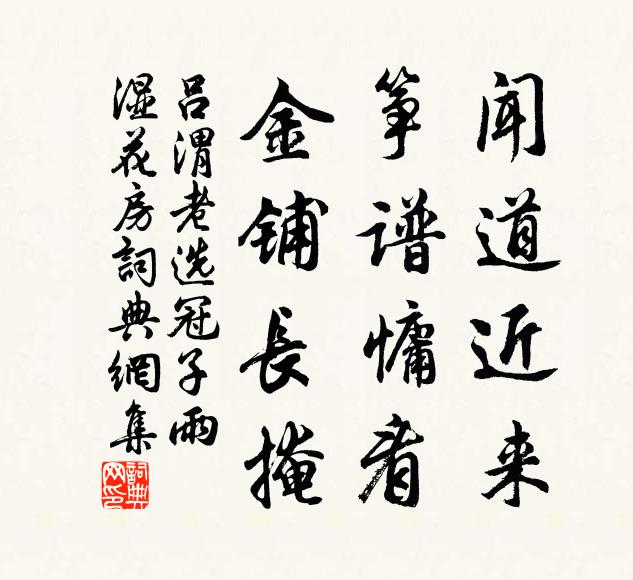 闻道近来
筝谱慵看
金铺长掩
吕渭老选冠子雨
湿花房詞典網集
詞典网印